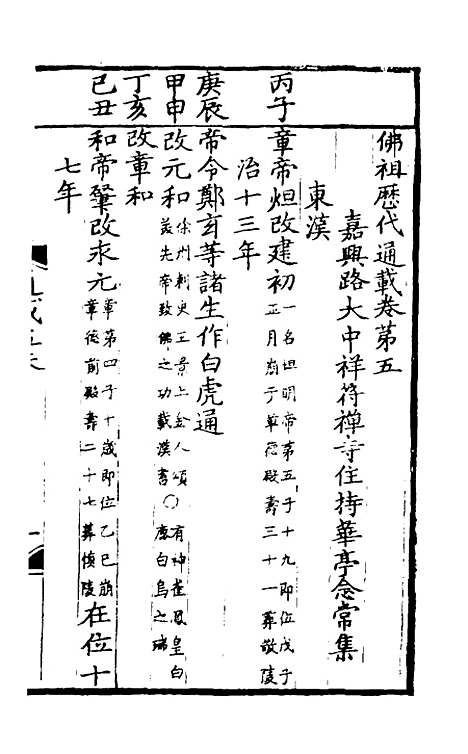 佛祖歷代通載卷第五
嘉興路大中祥符禪寺住持華亭念常集
東漢
丙子 章帝炟改建初 一名坦明帝第五子十九即位戊子正月崩于章德殿壽三十一葬敬陵
治十三年
庚辰 帝令鄭玄等諸生作白虎通
甲申 改元和 徐州刺史王景上金人頌美先帝致佛之功載漢書○有神雀鳳皇白鹿白烏之瑞
丁亥 改章和
己丑 和帝肇改永元 章第四子十歲即位乙巳崩章德前殿壽二十七葬慎陵 在位十
七年